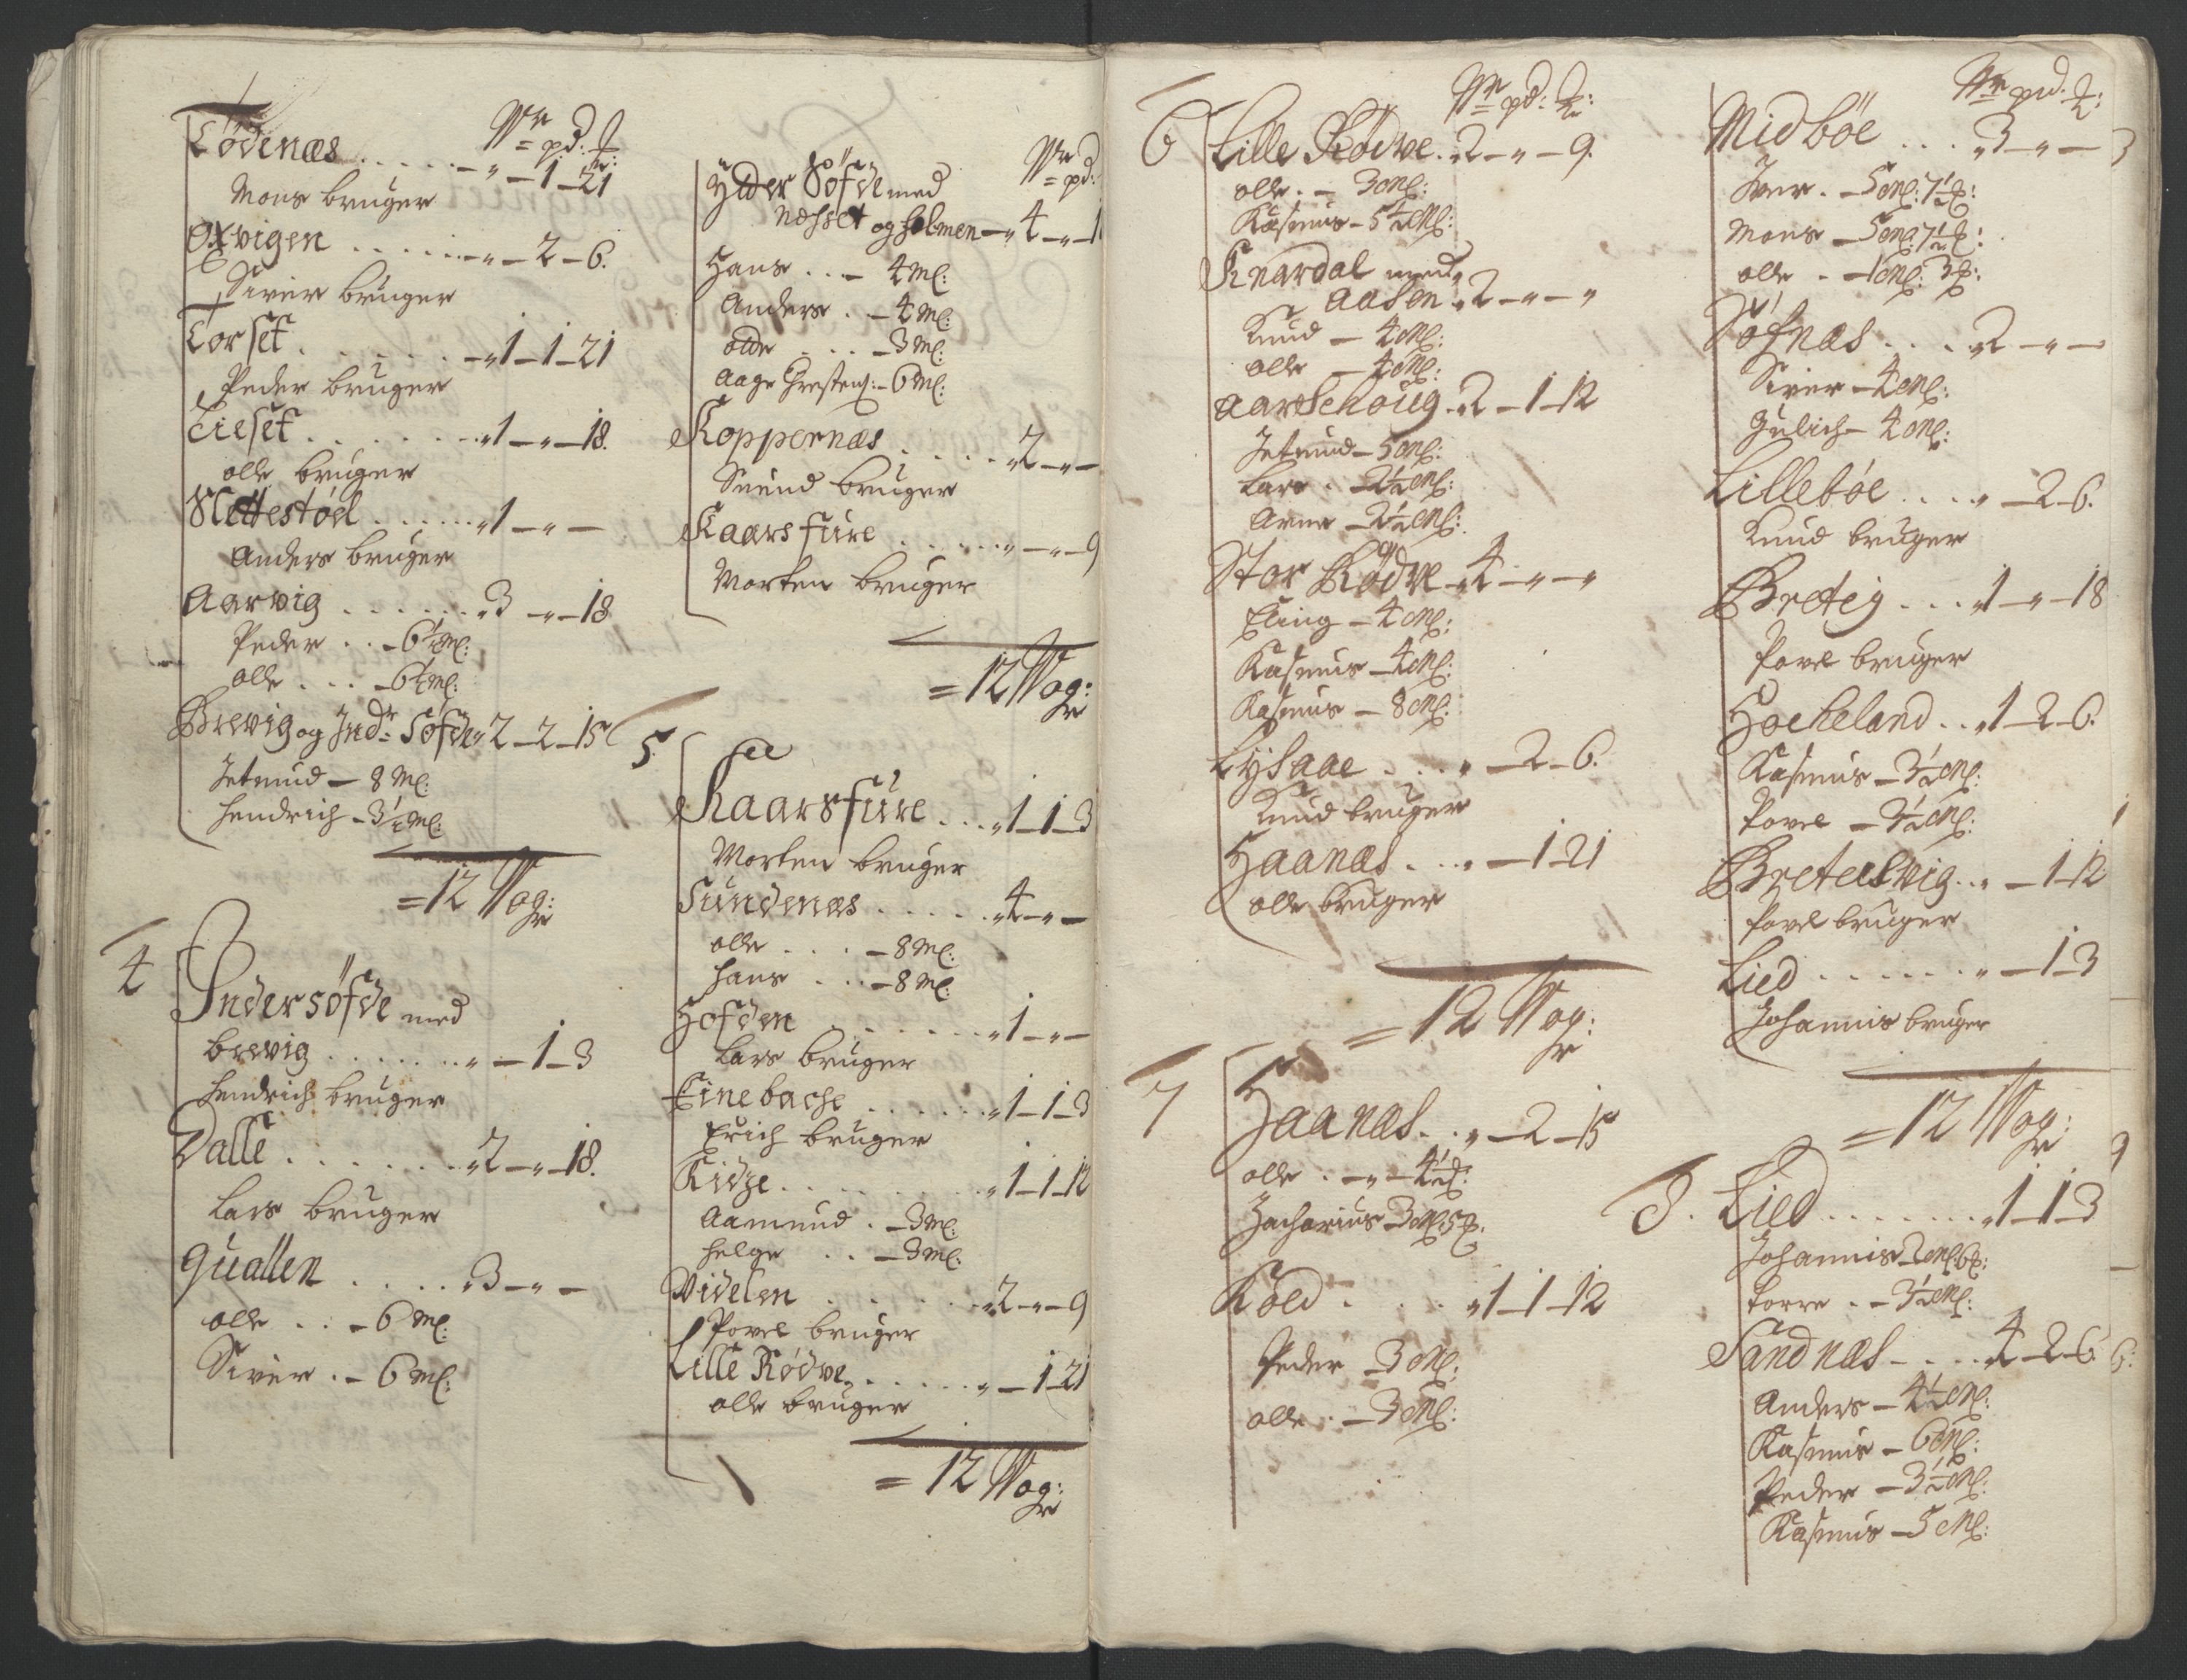 Wr pd: ℔:
Lødenæs . . . . . — „ — 1 — 21
Mons bruger
Oxvigen . . . . . . „ — 2 — 6.
Siver bruger
Torset . . . . . . — „ 1 — 1 — 21
Peder bruger
Lieset . . . . . . . „ 1 — „ — 18.
olle bruger
Slettestøel . . . . . „ 1 — „ —
Anders bruger
Aarvig . . . . . . . „ 3 — „ — 18
Peder . . — 6½ Ml:
olle . . . — 6½ Ml:
Brevig og Indr Søfde „ 2 — 2 — 15
Jetmund — 8 Ml:
Hendrich — 3½ Ml:
= 12 Wog:
4
Indersøfde med
brevig . . . . . . . „ — 1 — 3
Hendrich bruger
Dalle . . . . . . . „ 2 — „ — 18.
Lars bruger
Quallen . . . . . „ 3 — „ —
olle . . — 6 Ml:
Siver . — 6 Ml:
Wr pd:
Ytter Søfde med
Næsset og holmen — „ 4 — „ — 1
Hans . . — 4 Ml:
Anders . — 4 Ml:
odde . . . — 3 Ml:
Aage Chrestens: — 6 Ml:
Koppernæs . . . . . „ 2 — „ —
Svend bruger
Kaarsfure . . . . . „ — „ — 9
Morten bruger
= 12 Wog:
5.
Kaarsfure . . . „ 1 — 1 — 3
Morten bruger
Sundenæs . . . . . „ 4 — „ —
olle . . . . — 8 Ml:
Hans . . . — 8 Ml:
Hofden . . . . . . . „ 1 — „ —
Lars bruger
Einebache . . . . . . „ 1 — 1 — 3
Erich bruger
Ridze . . . . . . . . „ 1 — 1 — 12
Aamund . — 3 Ml:
Helge . . — 3 Ml:
Widelen . . . . . . „ 2 — „ — 9
Povel bruger
Lille Rødve . . . . . . „ — 1 — 21
olle bruger
= 12 Wog:
Wr pd: ℔:
6 Lille Rødve . 2 — „ — 9.
olle . — 3 Ml:
Rasmus — 5½ Ml:
Knardal med
Aasen „ 2 — „ — „
Knud — 4 Ml:
olle — 4 Ml:
Aarsehoug . 2 — 1 — 12
Jetmund — 5 Ml:
Lars . — 2½ Ml:
Arne — 2½ Ml:
Stor Rødve „ 4 — „ — „
Eling — 4 Ml:
Rasmus — 4 Ml:
Rasmus — 8 Ml:
Lysaae . . . „ — 2 — 6.
Knud bruger
Haanæs . . . „ — 1 — 21
olle bruger
= 12 Wog:
7
Haanæs . . „ — 2 — 15
olle . — „ — 4½ ℔:
Zacharius — 3 Ml: 5 ℔.
Røed . . . . „ 1 — 1 — 12
Peder — 3 Ml:
olle . — 3 Ml:
Wr pd. ℔:
Midbøe . . . „ 3 — „ — 3
Iver . — 5 Ml: 7½ ℔:
Mons — 5 Ml: 7½ ℔:
olle . — 1 Ml: 3 ℔:
Søfnæs . . . „ 2 — „ —
Siver — 4 Ml:
Gulich — 4 Ml:
Lillebøe . . . . „ — 2 — 6.
Knud bruger
Breteig . . . „ 1 — „ — 18
Povel bruger
Hocheland . . „ 1 — 2 — 6.
Rasmus — 3½ Ml:
Povel — 3½ Ml:
Bretelsvig . . „ — 1 — 12
Povel bruger
Lied . . . . . . . „ — 1 — 3
Johannis bruger
= 12 Wog:
8. Lied . . . . . . . „ 1 — 1 — 3
Johannis — 2 Ml. 6 ℔:
Torre . — 3½ Ml:
Sandnæs — . . . „ 4 — 2 — 6
Anders — 4½ Ml:
Rasmus — 6 Ml:
Peder — 3½ Ml:
Rasmus — 5 Ml: